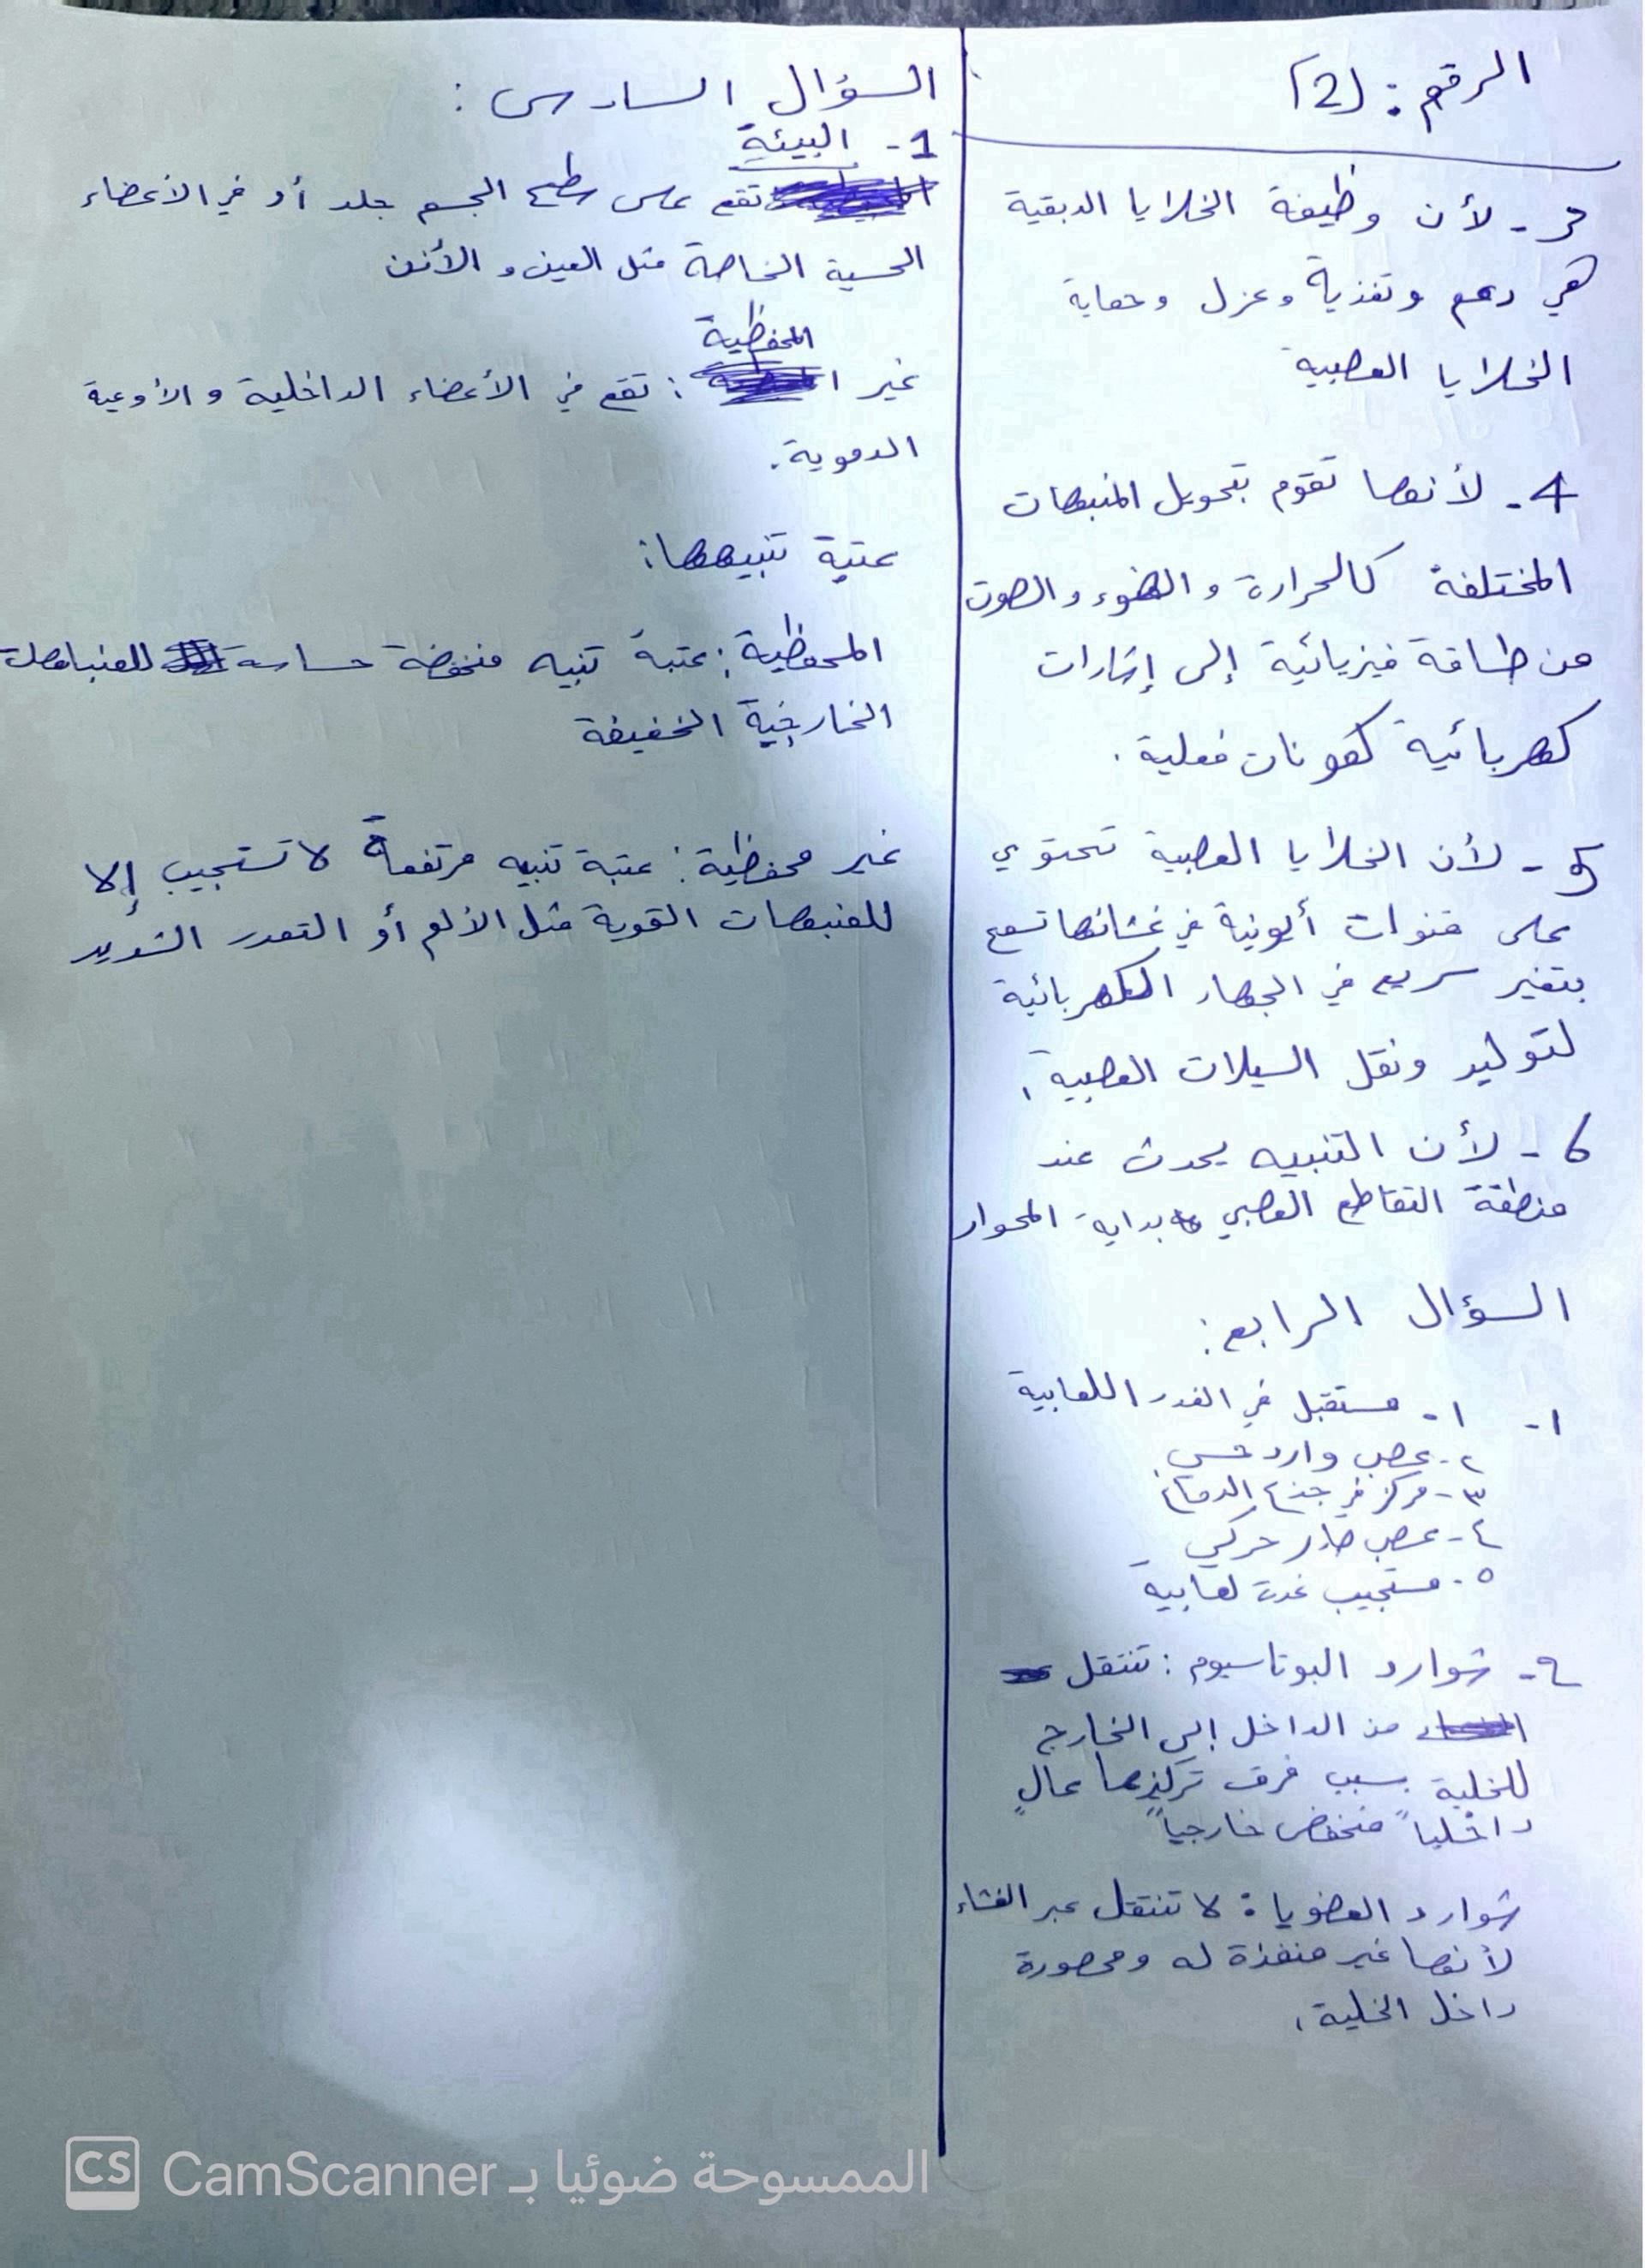 الرقم : (2)
3 - لأن وظيفة الخلايا الدبقية
هي دعم وتغذية وعزل وحماية
الخلايا العصبية
4 - لأنها تقوم بتحويل المنبهات
المختلفة كالحرارة والضوء والصوت
من طاقة فيزيائية إلى إشارات
كهربائية كمونات فعلية .
5 - لأن الخلايا العصبية تحتوي
على قنوات أيونية في غشائها تسمح
بتغير سريع في الجهار الكهربائية
لتوليد ونقل السيلات العصبية .
6 - لأن التنبيه يحدث عند
منطقة التقاطع العصبي بداية المحوار
السؤال الرابع :
١ - ١ - مستقبل في الغدد اللعابية
٢ - عصب وارد حسي
٣ - مركز في جذع الدماغ
٤ - عصب صادر حركي
٥ - مستجيب غدة لعابية
٢ - شوارد البوتاسيوم : تنتقل
من الداخل إلى الخارج
للخلية بسبب فرق تركيزها عالٍ
داخلياً منخفض خارجياً
شوارد العضويا : لا تنتقل عبر الغشاء
لأنها غير منفذة له ومحصورة
داخل الخلية .
السؤال السادس :
1 - البيئية
تقع على سطح الجسم جلد أو في الأعضاء
الحسية الخاصة مثل العين والأذن
المحفظية
غير : تقع في الأعضاء الداخلية والأوعية
الدموية .
عتبة تنبيهها :
المحفظية : عتبة تنبيه منخفضة حساسة
الخارجية الخفيفة
غير محفظية : عتبة تنبيه مرتفعة لا تستجيب إلا
للمنبهات القوية مثل الألم أو التمدد الشديد
CS CamScanner الممسوحة ضوئيا بـ